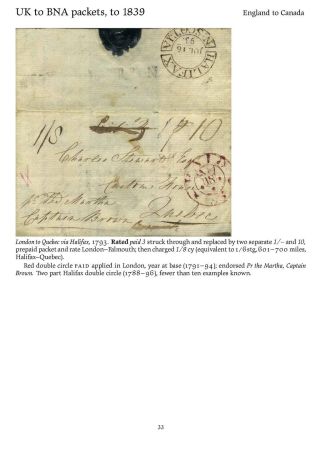 UK to BNA packets, to 1839
England to Canada
HALIFAX
1/8
1 P 10
Charles Stewart Esq
Custom House
Quebec
pr the Martha
Captain Brown
London to Quebec via Halifax, 1793. Rated paid 3 struck through and replaced by two separate 1/– and 10,
prepaid packet and rate London–Falmouth; then charged 1/8 cy (equivalent to 1/6 stg, 601–700 miles,
Halifax–Quebec).
Red double circle PAID applied in London, year at base (1791–94); endorsed Pr the Martha, Captain
Brown. Two part Halifax double circle (1788–96), fewer than ten examples known.
33